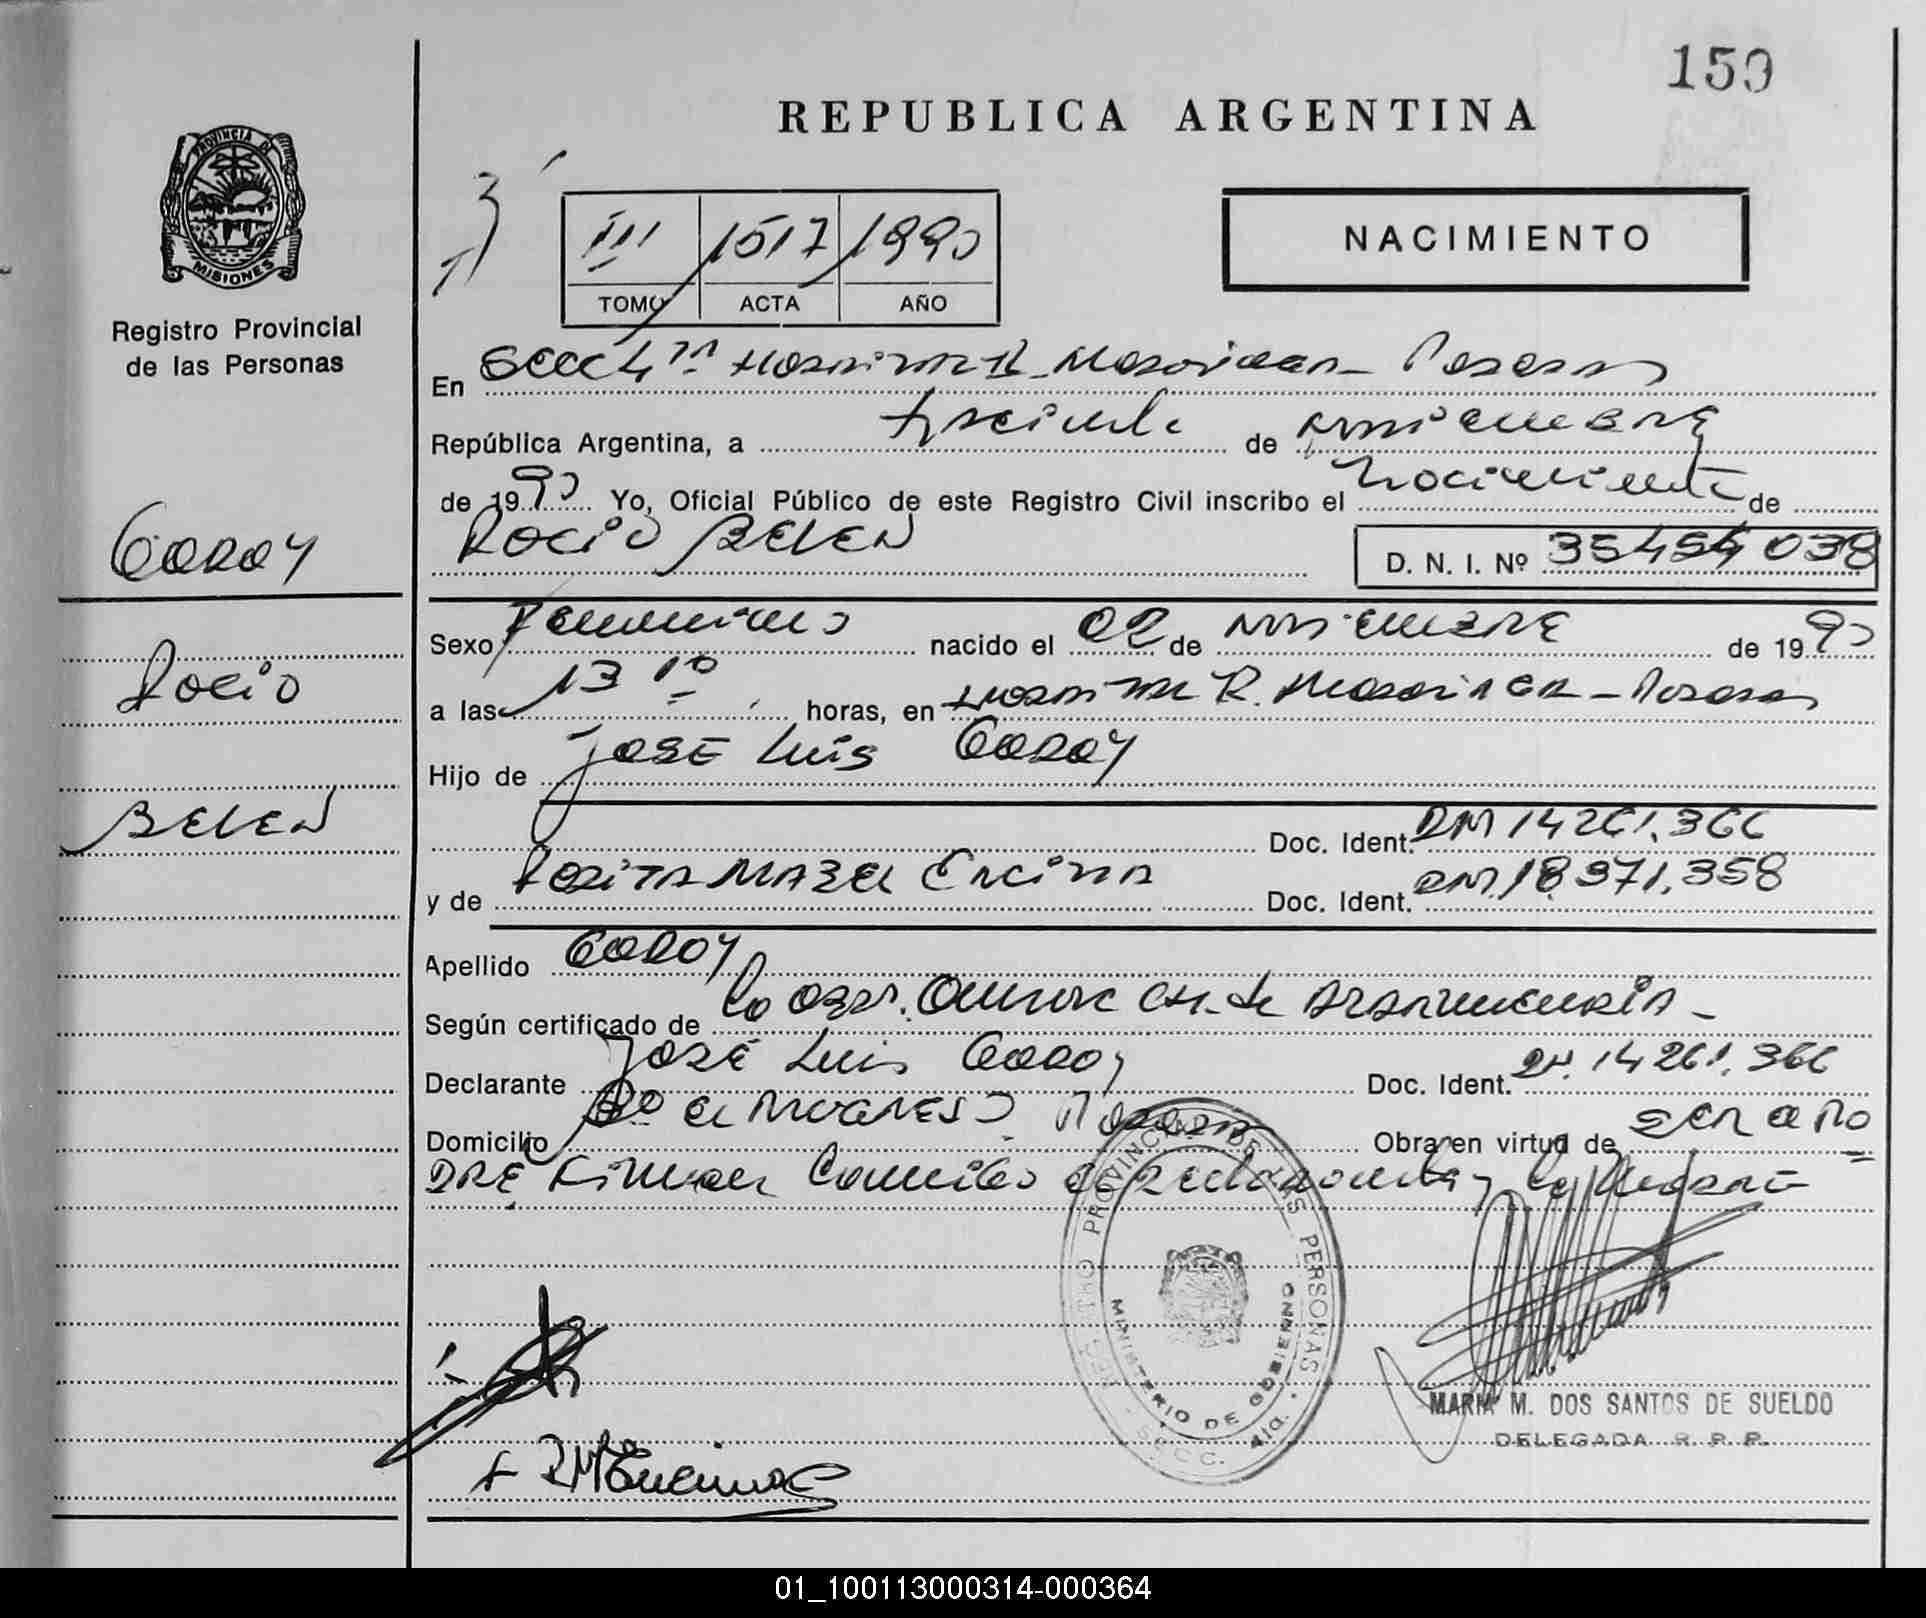 159
REPUBLICA ARGENTINA
PROVINCIA DE
MISIONES
Registro Provincial
de las Personas
III 1517 1990
TOMO ACTA AÑO
NACIMIENTO
En Secc 4ta Hospital R. Madariaga - Posadas
República Argentina, a de noviembre
de 1990 Yo, Oficial Público de este Registro Civil inscribo el nacimiento de
Rocio Belen D. N. I. Nº 35454038
GODOY
Rocio
BELEN
Sexo Femenino nacido el 02 de noviembre de 1990
a las 13 10 horas, en Hospital R. Madariaga - Posadas
Hijo de José Luis GODOY
Doc. Ident. DNI 14261.366
y de Rosita Mabel Encina Doc. Ident. DNI 18371.358
Apellido GODOY
Según certificado de la Obst.
Declarante José Luis Godoy Doc. Ident. DNI. 14261.366
Domicilio Bº Posadas Obra en virtud de ser el pa
dre Firman
REGISTRO PROVINCIAL DE LAS PERSONAS
MINISTERIO DE GOBIERNO
SECC. 4ta.
R M Encina
MARIA M. DOS SANTOS DE SUELDO
DELEGADA R. P. P.
01_100113000314-000364